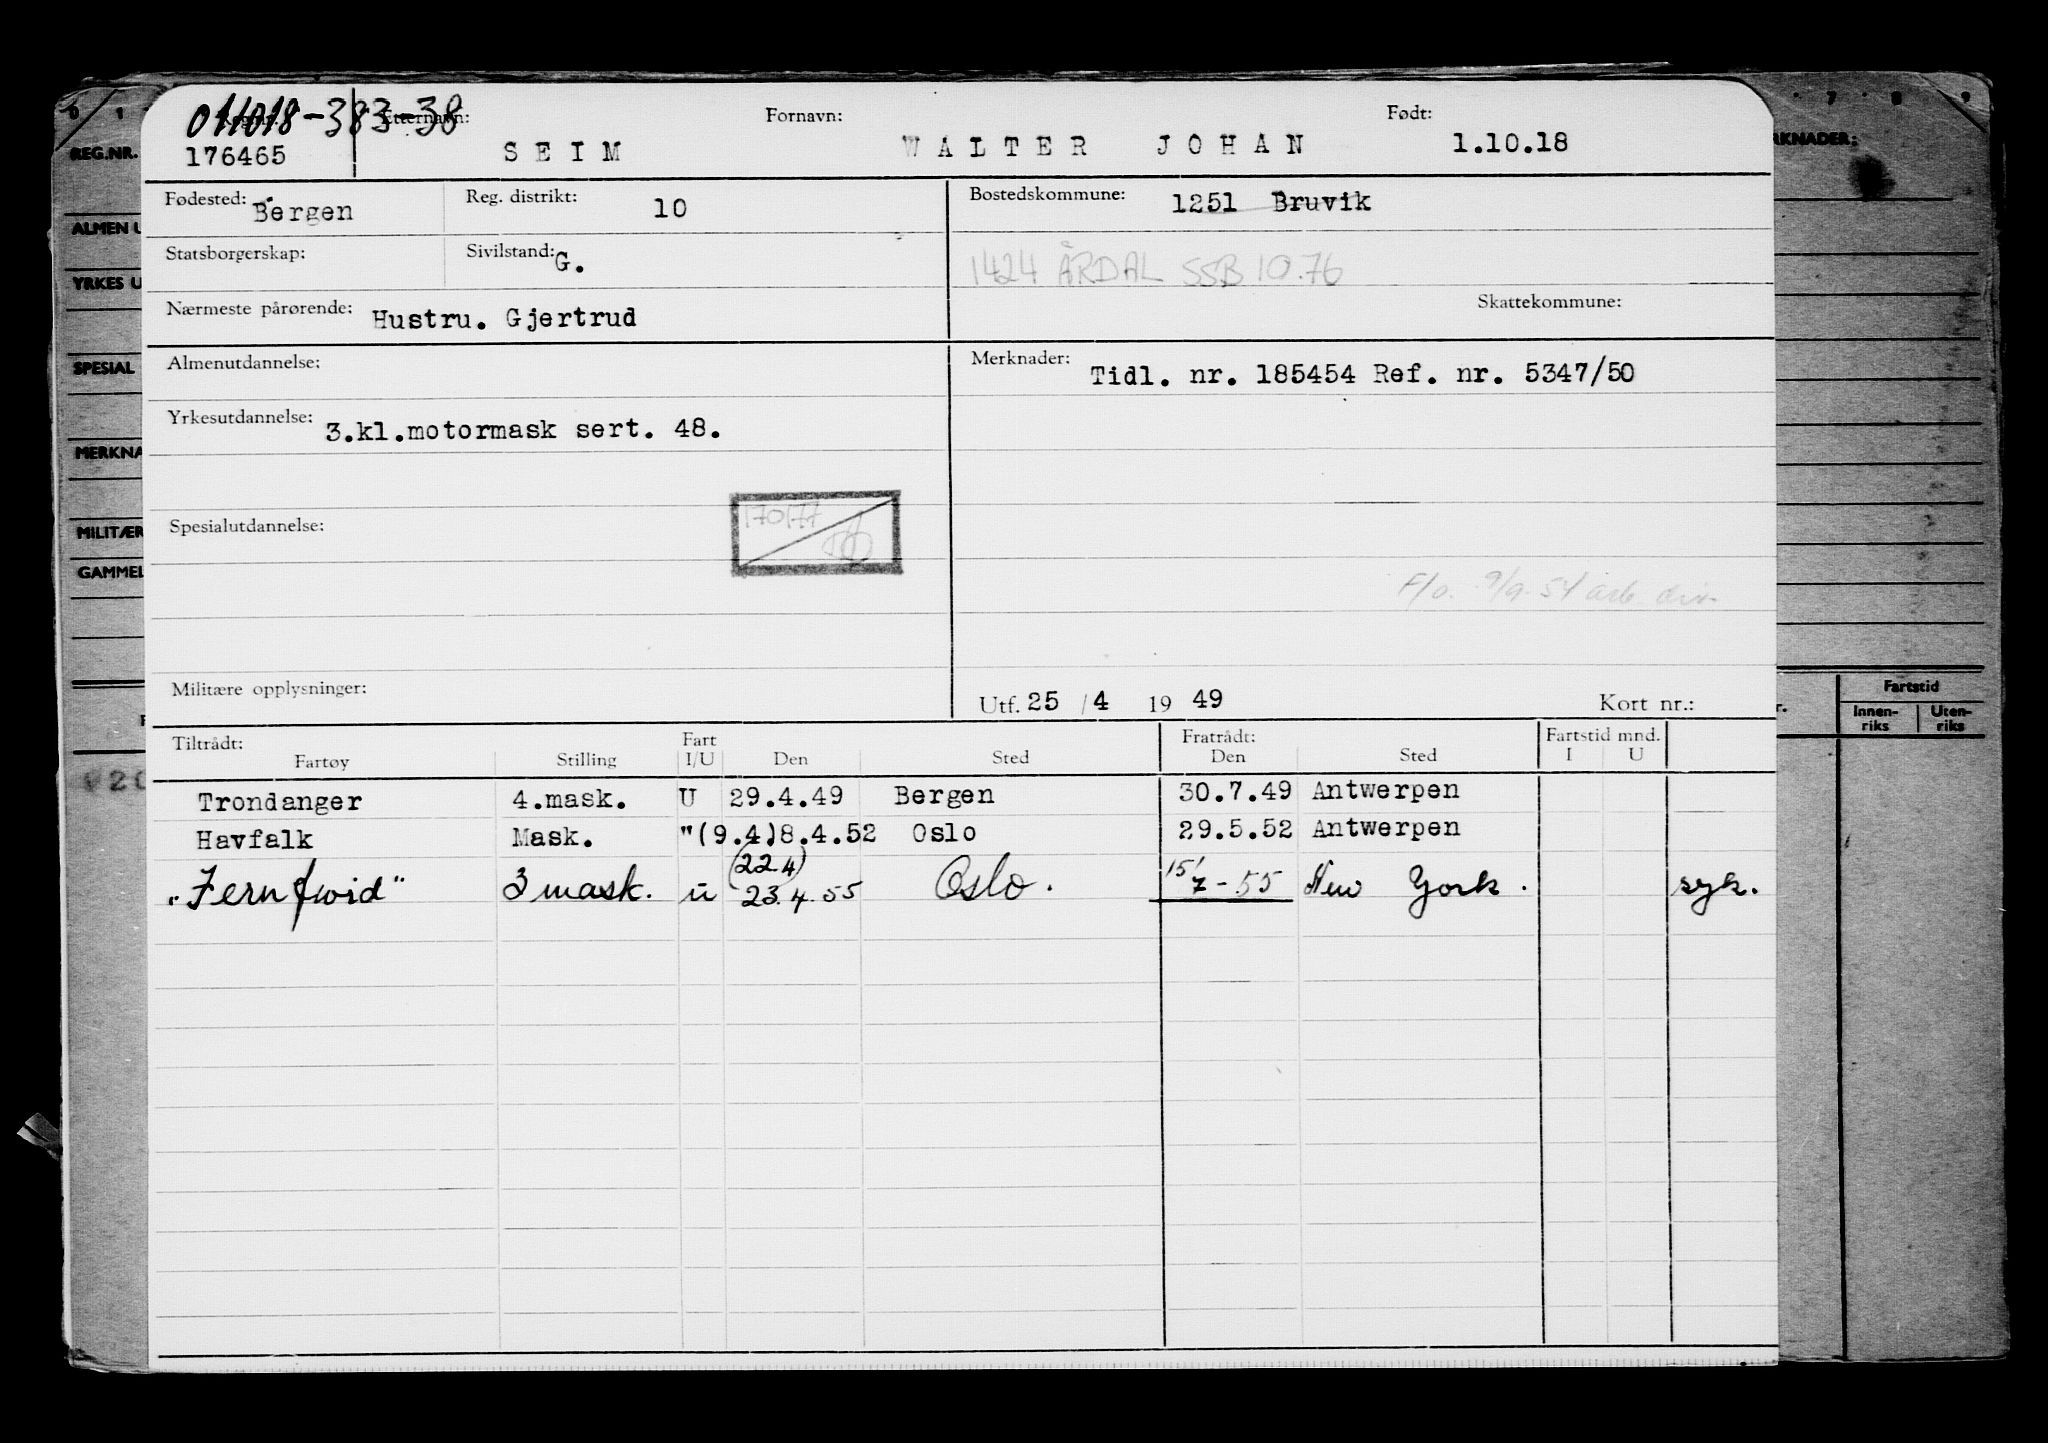 011018-383-38
Etternavn: Fornavn: Født:
176465 SEIM WALTER JOHAN 1.10.18
Fødested: Bergen Reg. distrikt: 10 Bostedskommune: 1251 Bruvik
Statsborgerskap: Sivilstand: G. 1424 ÅRDAL SSB 10.76
Nærmeste pårørende: Hustru. Gjertrud Skattekommune:
Almenutdannelse: Merknader: Tidl. nr. 185454 Ref. nr. 5347/50
Yrkesutdannelse: 3.kl.motormask sert. 48.
Spesialutdannelse: 170177
F/o. 9/9-54 arb. div.
Militære opplysninger: Utf. 25 / 4 19 49 Kort nr.:
Tiltrådt: Fart Fratrådt: Fartstid mnd.
Fartøy Stilling I/U Den Sted Den Sted I U
Trondanger 4.mask. U 29.4.49 Bergen 30.7.49 Antwerpen
Havfalk Mask. "(9.4)8.4.52 Oslo 29.5.52 Antwerpen
(22.4)
"Fernfwid" 3 mask. u 23.4.55 Oslo. 15/7-55 New York. syk.
0 1 7 8 9
REG.NR.
ALMEN U
YRKES U
SPESIAL
MERKNA
MILITÆR
GAMMEL
RKNADER:
Fartstid
Innen-riks Uten-riks